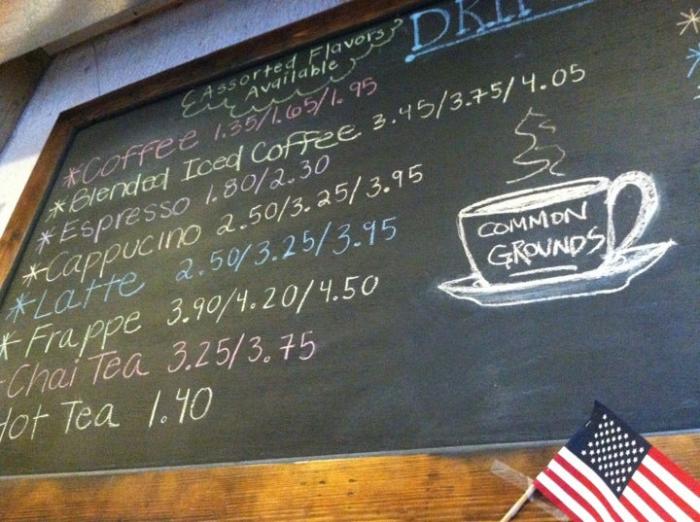 Assorted Flavors
Available
*Coffee 1.35/1.65/1.95
*Blended Iced Coffee 3.45/3.75/4.05
*Espresso 1.80/2.30
*Cappucino 2.50/3.25/3.95
*Latte 2.50/3.25/3.95
*Frappe 3.90/4.20/4.50
Chai Tea 3.25/3.75
Hot Tea 1.40
COMMON
GROUNDS